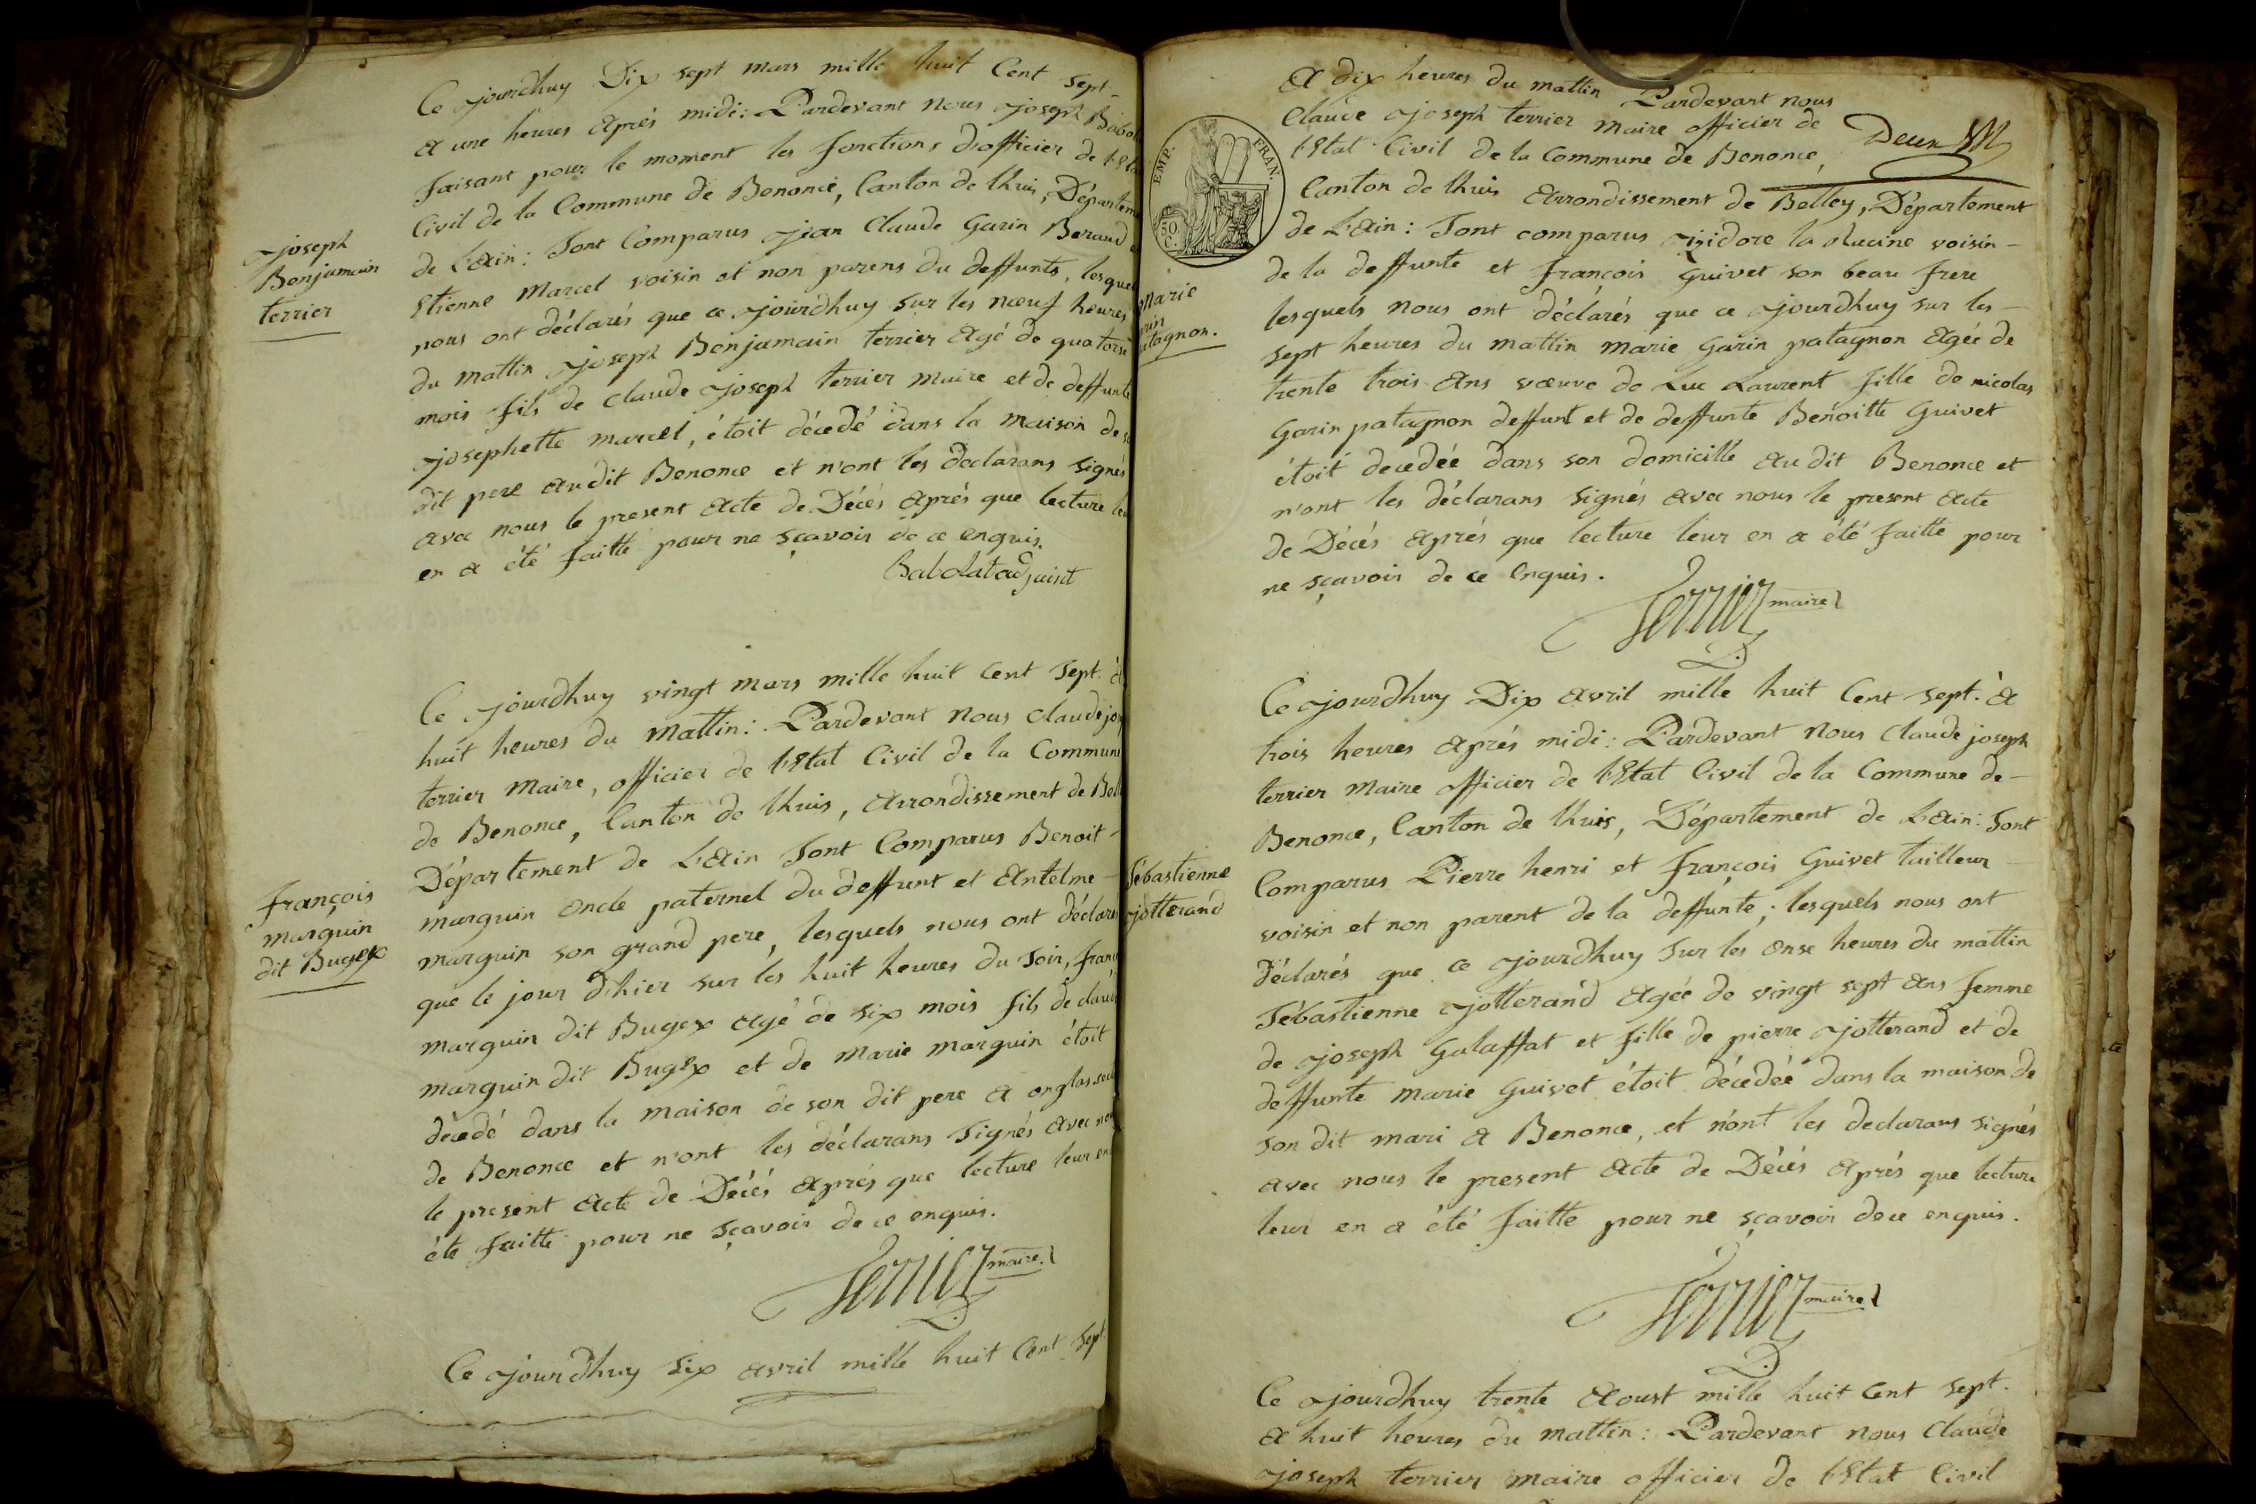 Ce jourdhuy Dix sept mars mille huit Cent sept-
a une heures après midi: Pardevant nous joseph
faisant pour le moment les fonctions d'officier de
Civil de la Commune de Benonce, Canton de lhuis,
de L'ain: Sont Comparus jean Claude Garin Beraud
Etienne Marcel voisin et non parens du deffunts,
nous ont déclarés que ce jourdhuy sur les nœuf heures
du mattin joseph Benjamain terrier agé de quatorse
mois fils de Claude joseph terrier maire et de deffunte
josephette marcel, étoit décédé dans la maison de
dit pere audit Benonce et n'ont les declarans signés
avec nous le present acte de Décés après que lecture
en a été faitte pour ne sçavoir de ce enquis.
Babolat adjoint
joseph
Benjamain
terrier
Ce jourdhuy vingt mars mille huit Cent sept.
huit heures du mattin: Pardevant nous Claude
terrier Maire, officier de l'Etat Civil de la Commune
de Benonce, Canton de lhuis, arrondissement de
Département de L'ain Sont Comparus Benoit-
marguin oncle paternel du deffunt et antelme-
marguin son grand pere, lesquels nous ont
que le jour d'hier sur les huit heures du soir,
marguin dit Bugex agé de six mois fils de
marguin dit Bugex et de Marie marguin étoit
décédé dans la maison de son dit pere a onglas
de Benonce et n'ont les déclarans signés avec
le present acte de Décés après que lecture leur en
été faitte pour ne sçavoir de ce enquis.
Terrier maire
françois
marguin
dit Bugex
Ce jourdhuy six avril mille huit Cent sept
a dix heures du mattin Pardevant nous
Claude joseph terrier maire officier de
l'Etat Civil de la Commune de Benonce,
Canton de lhuis arrondissement de Belley, Département
de L'ain: Sont comparus isidore la Racine voisin-
de la deffunte et françois Guivet son beau frere
lesquels nous ont déclarés que ce jourdhuy sur les-
sept heures du mattin marie Garin patagnon agée de
trente trois ans vœuve de Luc Laurent fille de nicolas
Garin patagnon deffunt et de deffunte Benoitte Guivet
étoit decedée dans son domicille au dit Benonce et
n'ont les déclarans signés avec nous le present acte
de Décés après que lecture leur en a été faitte pour
ne sçavoir de ce enquis.
Terrier maire
EMP. FRAN.
50 C.
Marie
Ce jourdhuy Dix avril mille huit Cent sept. a
trois heures après midi: Pardevant nous Claude joseph
terrier maire officier de l'Etat Civil de la Commune de-
Benonce, Canton de lhuis, Département de L'ain: Sont
Comparus Pierre henri et françois Guivet tailleur-
voisin et non parent de la deffunte; lesquels nous ont
déclarés que ce jourdhuy sur les onse heures du mattin
Sébastienne jotterand agée de vingt sept ans femme
de joseph Galaffat et fille de pierre jotterand et de
deffunte marie Guivet étoit décédée dans la maison de
son dit mari a Benonce, et n'ont les declarans signés
avec nous le present acte de Décés après que lecture
leur en a été faitte pour ne sçavoir de ce enquis.
Terrier maire
Sébastienne
jotterand
Ce jourdhuy trente aoust mille huit Cent sept.
a huit heures du mattin: Pardevant nous Claude
joseph terrier maire officier de l'Etat Civil